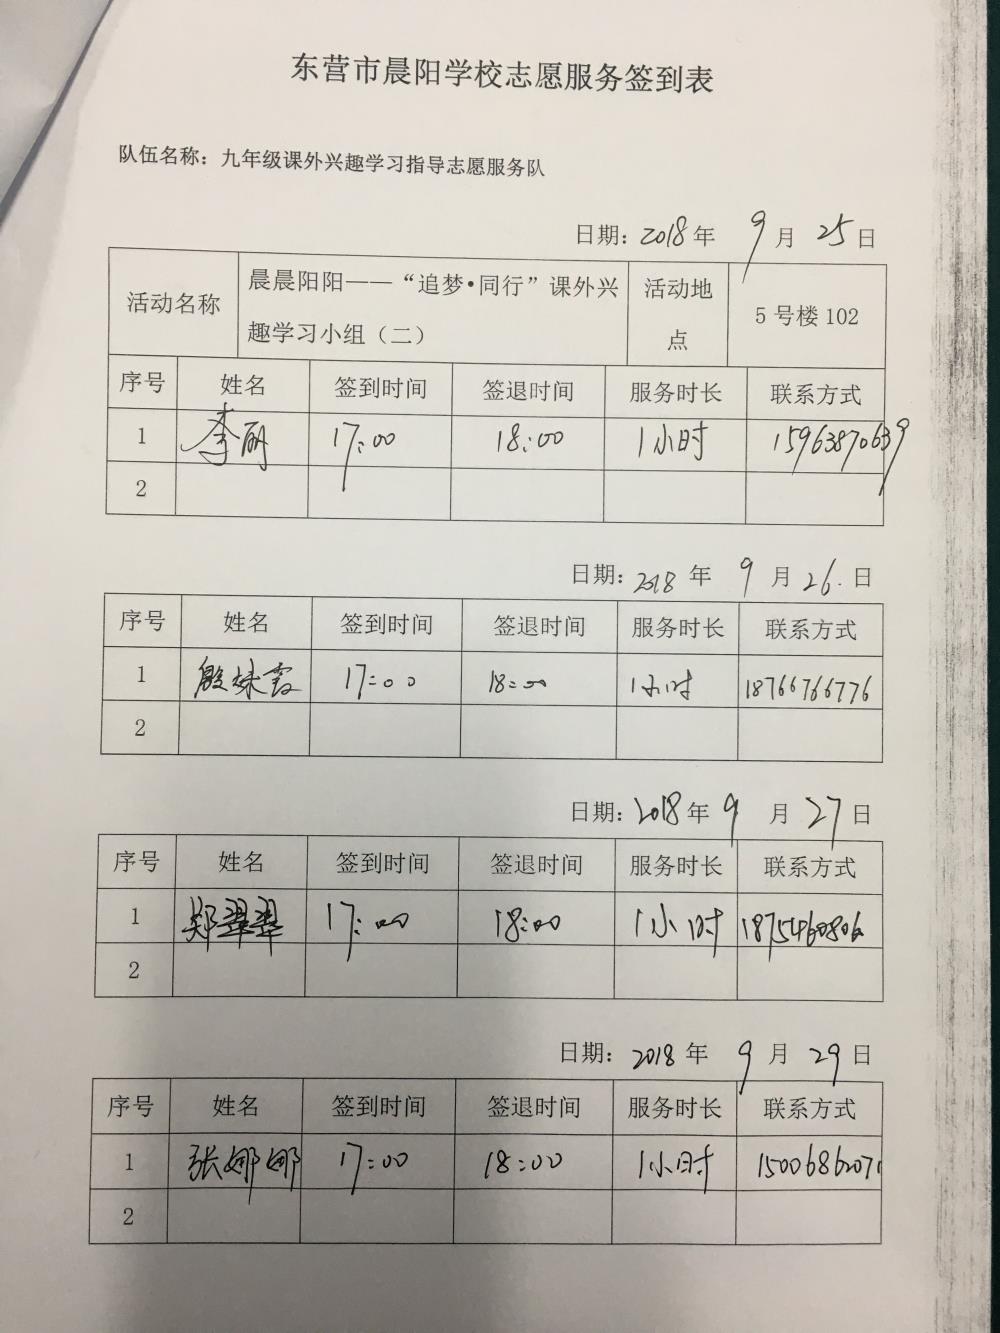 东营市晨阳学校志愿服务签到表
队伍名称：九年级课外兴趣学习指导志愿服务队
日期：2018年 9月 25日
活动名称 晨晨阳阳——“追梦•同行”课外兴趣学习小组（二） 活动地点 5号楼102
序号 姓名 签到时间 签退时间 服务时长 联系方式
1 李丽 17:00 18:00 1小时 15963870639
2
日期：2018年 9月 26.日
序号 姓名 签到时间 签退时间 服务时长 联系方式
1 殷妹霞 17:00 18:00 1小时 18766766776
2
日期：2018年 9月 27日
序号 姓名 签到时间 签退时间 服务时长 联系方式
1 郑翠翠 17:00 18:00 1小时
2
日期：2018年 9月 29日
序号 姓名 签到时间 签退时间 服务时长 联系方式
1 张娜娜 17:00 18:00 1小时 15006862071
2